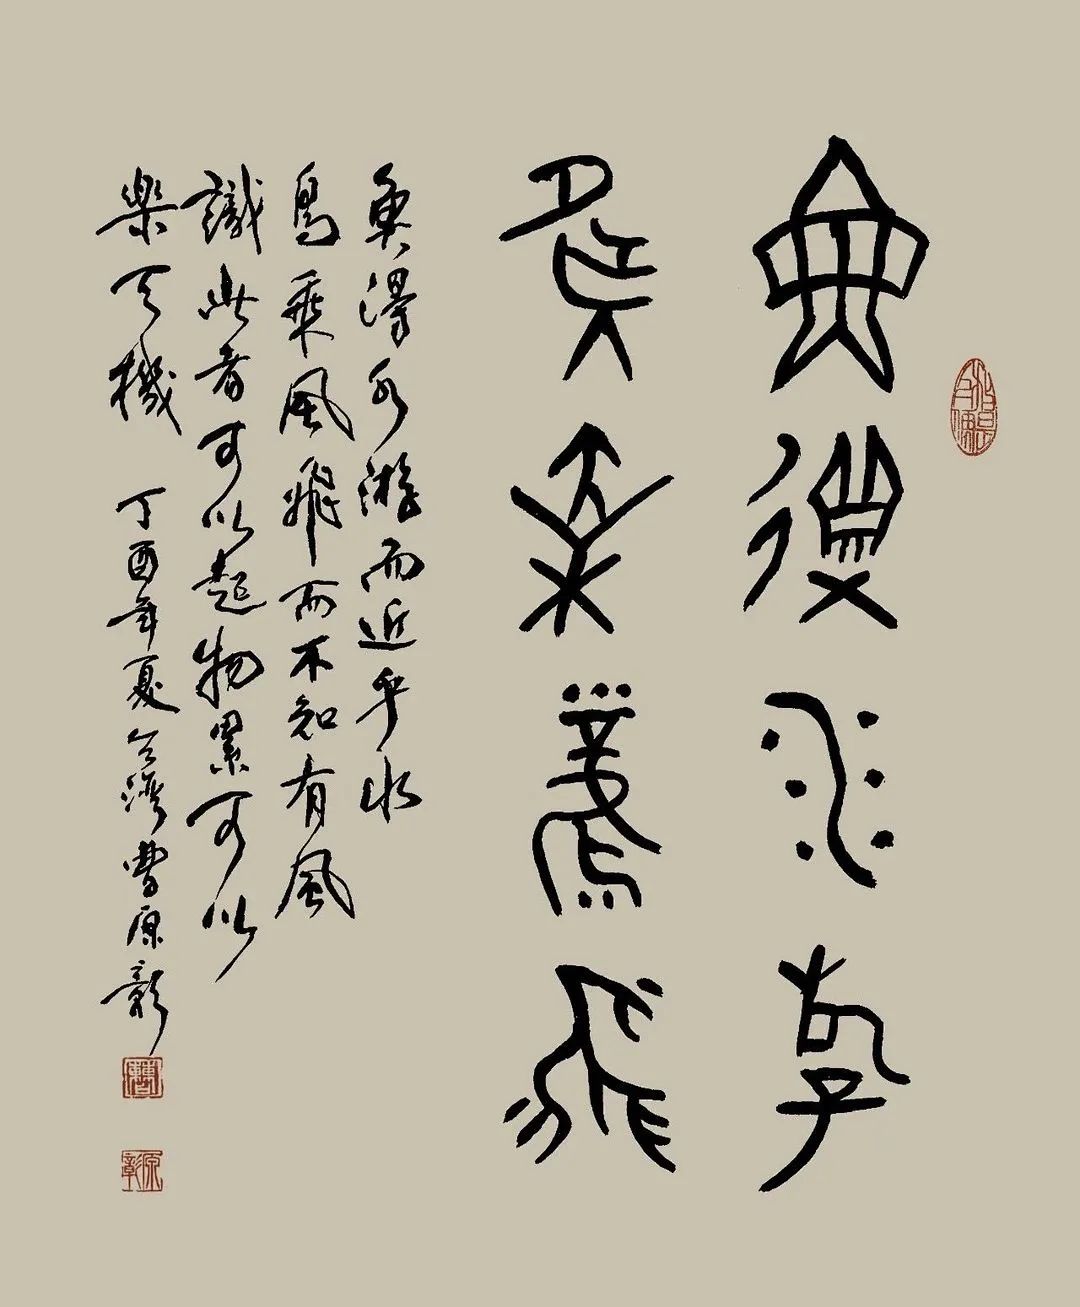 魚得水游
鳥乘風飛
魚得水游而近乎水
鳥乘風飛而不知有風
識此者可以超物累可以
樂天機 丁酉年夏台灣曹原彰
原彰